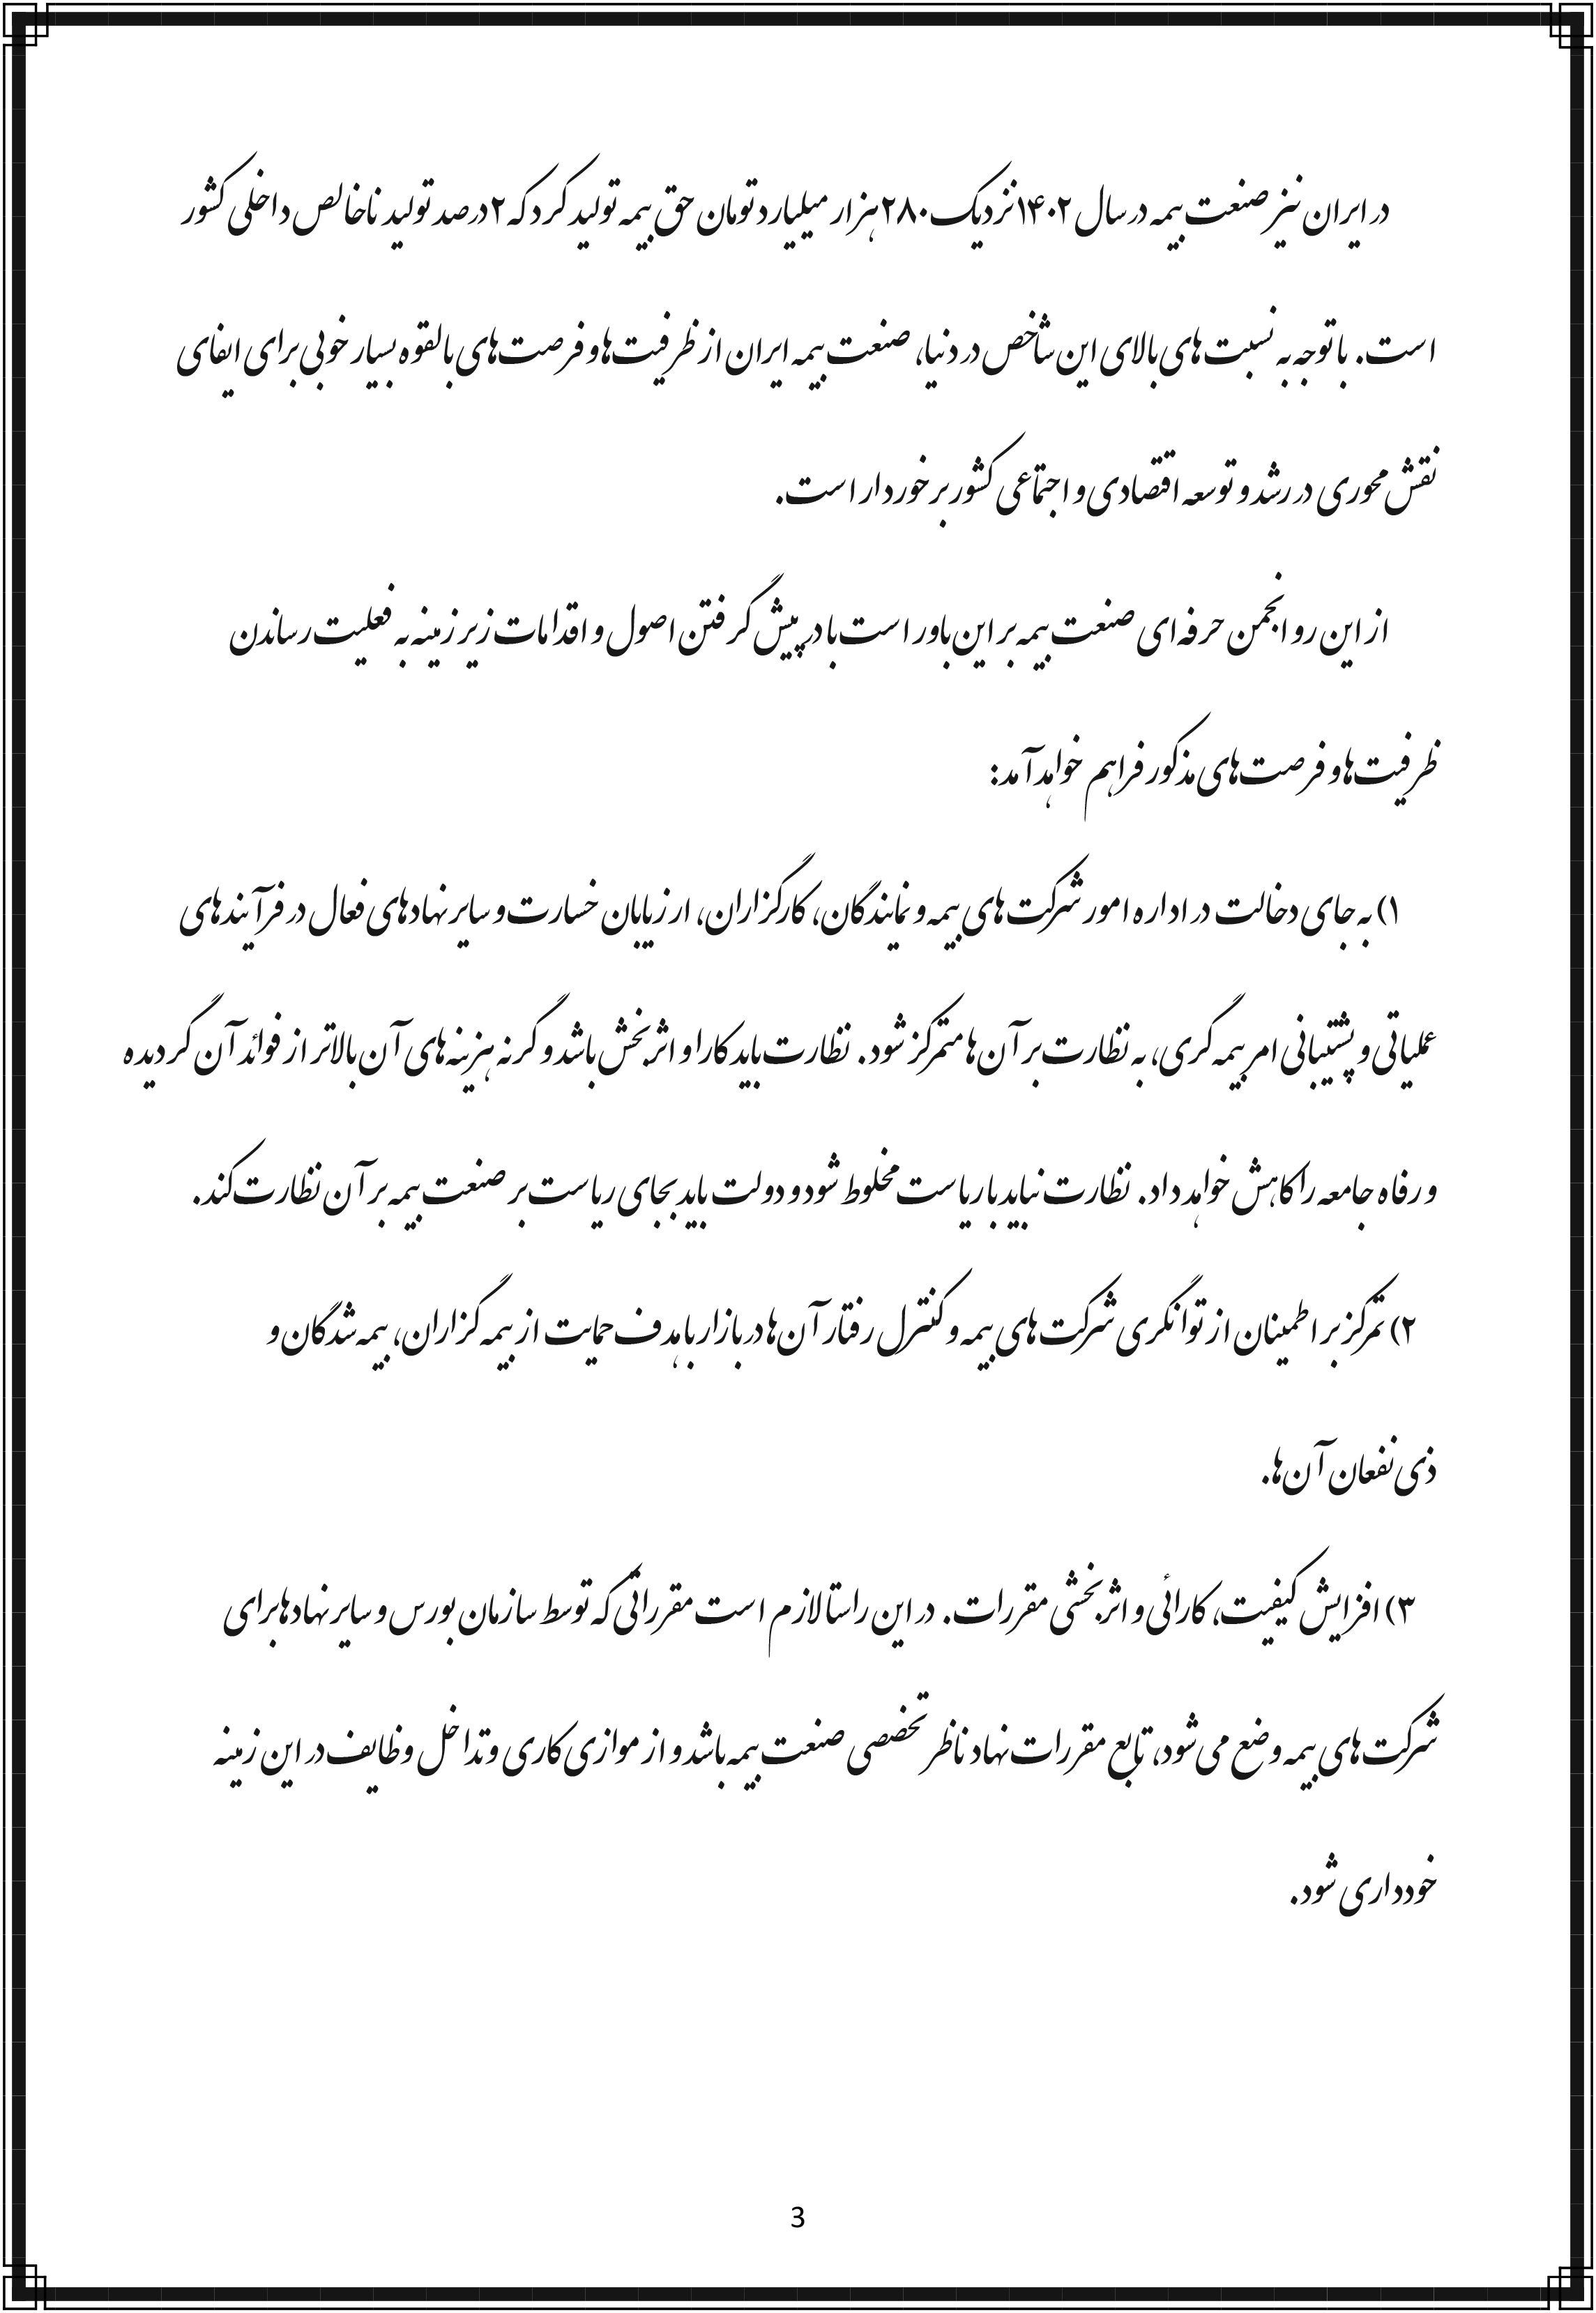 در ایران نیز صنعت بیمه در سال ۱۴۰۲ نزدیک ۲۸۰ هزار میلیارد تومان حق بیمه تولید کرد که ۲ درصد تولید ناخالص داخلی کشور
است. با توجه به نسبت های بالای این شاخص در دنیا، صنعت بیمه ایران از ظرفیت‌ها و فرصت‌های بالقوه بسیار خوبی برای ایفای
نقش محوری در رشد و توسعه اقتصادی و اجتماعی کشور برخوردار است.
از این رو انجمن حرفه ای صنعت بیمه بر این باور است با در پیش گرفتن اصول و اقدامات زیر زمینه به فعلیت رساندن
ظرفیت‌ها و فرصت‌های مذکور فراهم خواهد آمد:
۱) به جای دخالت در اداره امور شرکت های بیمه و نمایندگان، کارگزاران، ارزیابان خسارت و سایر نهادهای فعال در فرآیندهای
عملیاتی و پشتیبانی امر بیمه گری، به نظارت بر آن ها متمرکز شود. نظارت باید کارا و اثربخش باشد و گرنه هزینه های آن بالاتر از فوائد آن گردیده
و رفاه جامعه را کاهش خواهد داد. نظارت نباید با ریاست مخلوط شود و دولت باید بجای ریاست بر صنعت بیمه بر آن نظارت کند.
۲) تمرکز بر اطمینان از توانگری شرکت های بیمه و کنترل رفتار آن ها در بازار با هدف حمایت از بیمه گزاران، بیمه شدگان و
ذی نفعان آن ها.
۳) افزایش کیفیت، کارائی و اثربخشی مقررات. در این راستا لازم است مقرراتی که توسط سازمان بورس و سایر نهادها برای
شرکت های بیمه وضع می شود، تابع مقررات نهاد ناظر تخصصی صنعت بیمه باشد و از موازی کاری و تداخل وظایف در این زمینه
خودداری شود.
3